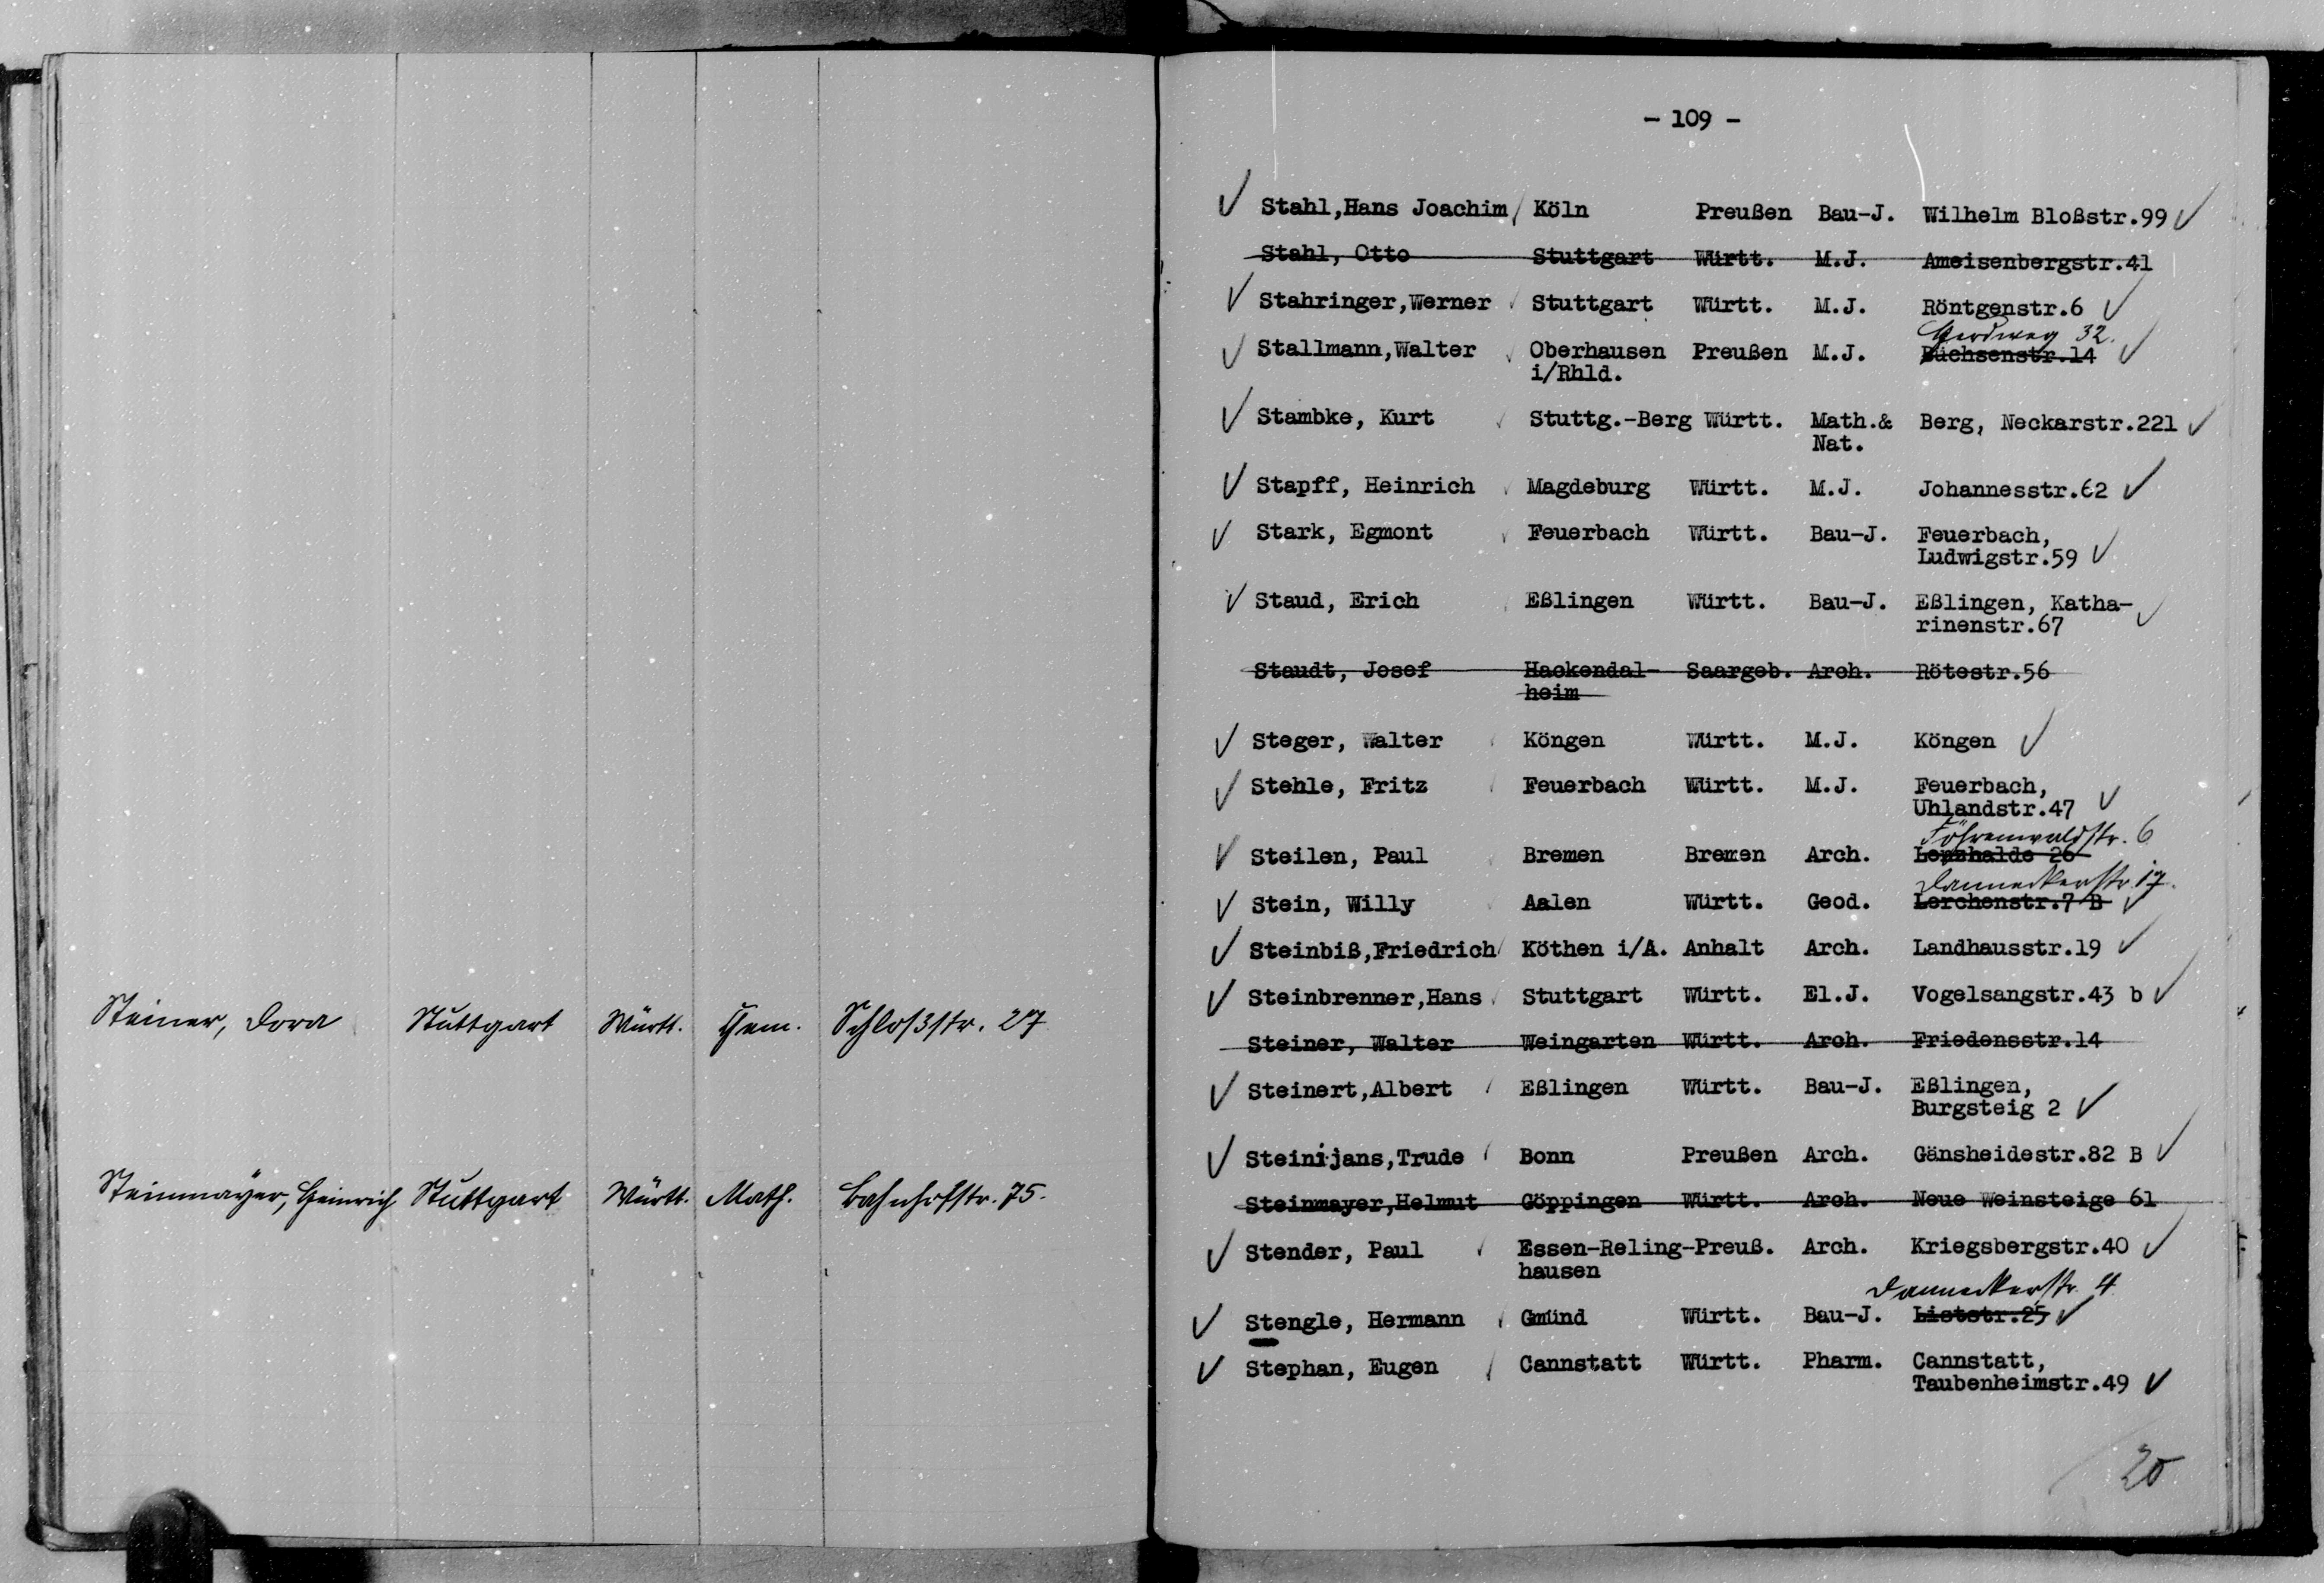 Steiner, Dora Stuttgart Württ. Chem. Schloßstr. 27
Steinmayer, Heinrich Stuttgart Württ. Math. Bahnhofstr. 75.
- 109 -
Stahl,Hans Joachim Köln Preußen Bau-J. Wilhelm Bloßstr.99
Stahl, Otto Stuttgart Württ. M.J. Ameisenbergstr.41
Stahringer,Werner Stuttgart Württ. M.J. Röntgenstr.6
Herdweg 32.
Stallmann,Walter Oberhausen Preußen M.J. Büchsenstr.14
i/Rhld.
Stambke, Kurt Stuttg.-Berg Württ. Math.& Berg, Neckarstr.221
Nat.
Stapff, Heinrich Magdeburg Württ. M.J. Johannesstr.62
Stark, Egmont Feuerbach Württ. Bau-J. Feuerbach,
Ludwigstr.59
Staud, Erich Eßlingen Württ. Bau-J. Eßlingen, Katha-
rinenstr.67
Staudt, Josef Hackendal- Saargeb. Arch. Rötestr.56
heim
Steger, Walter Köngen Württ. M.J. Köngen
Stehle, Fritz Feuerbach Württ. M.J. Feuerbach,
Uhlandstr.47
Föhrenwaldstr. 6
Steilen, Paul Bremen Bremen Arch. Lenzhalde 26
Danneckerstr. 17.
Stein, Willy Aalen Württ. Geod. Lerchenstr.7 B
Steinbiß,Friedrich Köthen i/A. Anhalt Arch. Landhausstr.19
Steinbrenner,Hans Stuttgart Württ. El.J. Vogelsangstr.43 b
Steiner, Walter Weingarten Württ. Arch. Friedensstr.14
Steinert,Albert Eßlingen Württ. Bau-J. Eßlingen,
Burgsteig 2
Steinijans,Trude Bonn Preußen Arch. Gänsheidestr.82 B
Steinmayer,Helmut Göppingen Württ. Arch. Neue Weinsteige 61
Stender, Paul Essen-Reling-Preuß. Arch. Kriegsbergstr.40
hausen
Danneckerstr. 4
Stengle, Hermann Gmünd Württ. Bau-J. Liststr.25
Stephan, Eugen Cannstatt Württ. Pharm. Cannstatt,
Taubenheimstr.49
20